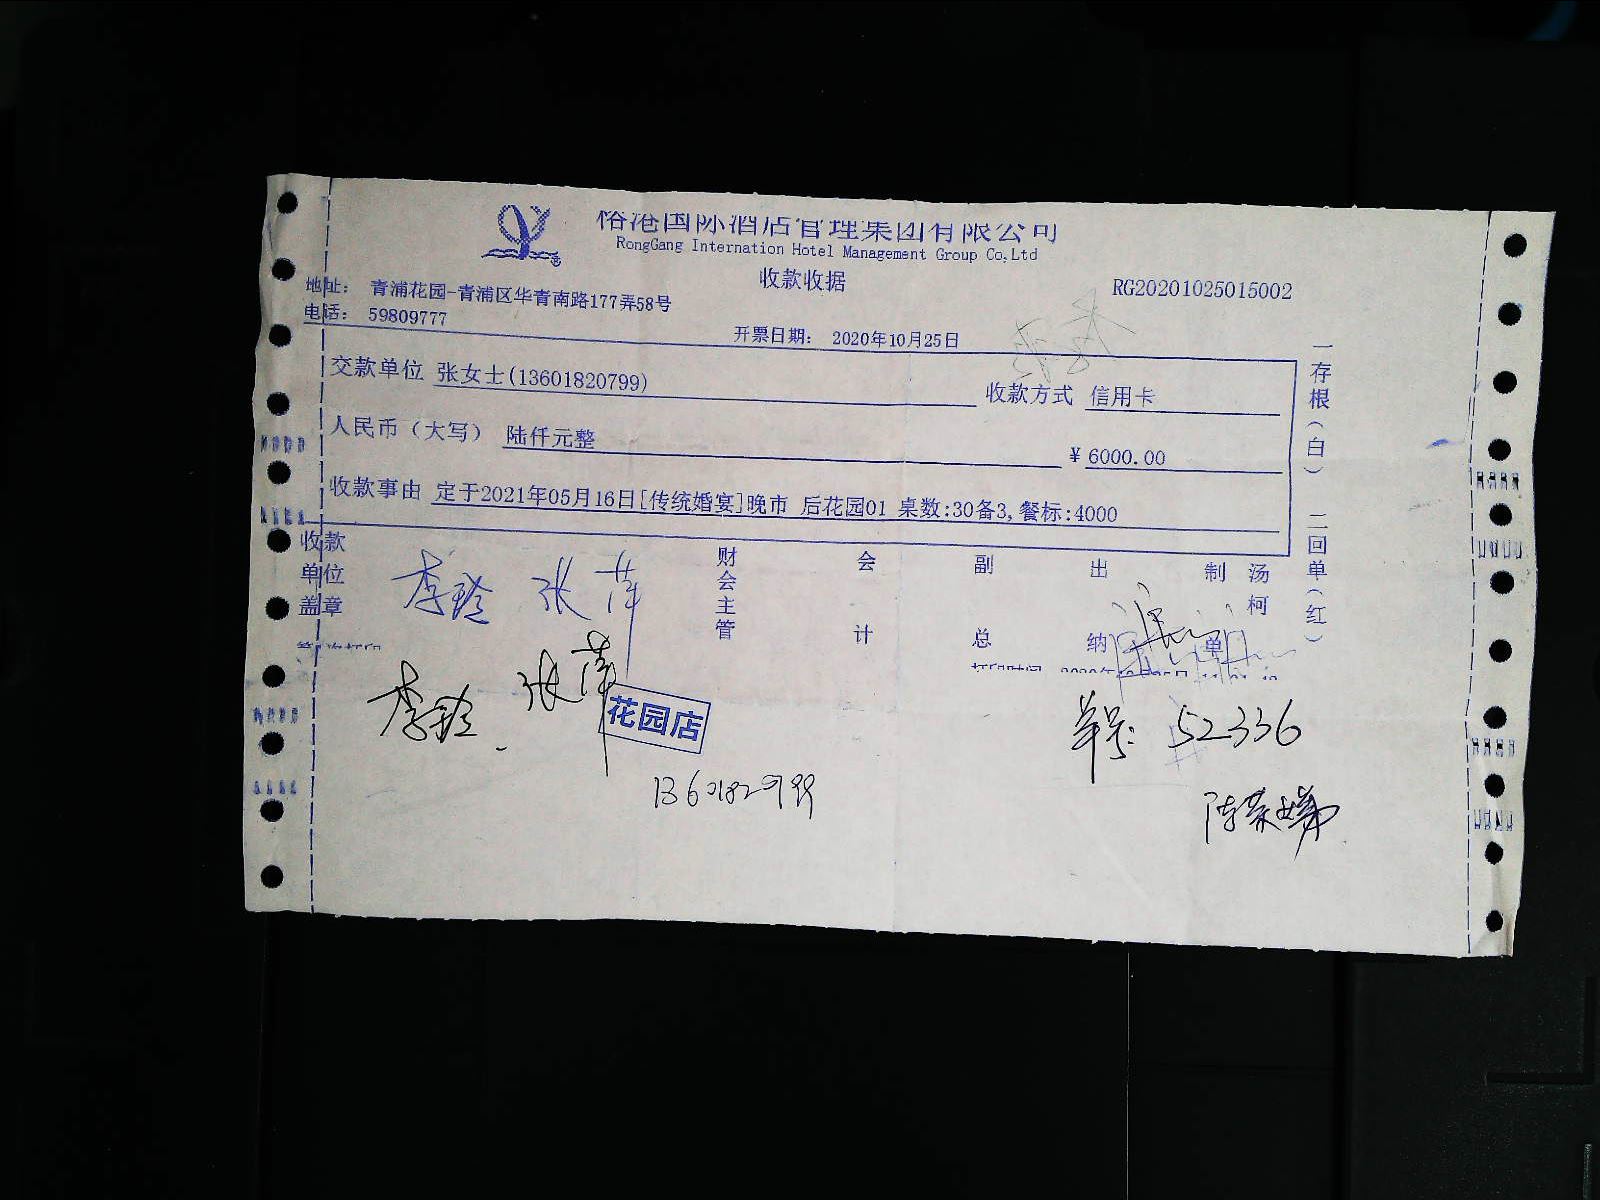 榕港国际酒店管理集团有限公司
RongGang Internation Hotel Management Group Co,Ltd
收款收据
RG20201025015002
地址： 青浦花园-青浦区华青南路177弄58号
电话： 59809777
开票日期： 2020年10月25日
交款单位 张女士(13601820799) 收款方式 信用卡
人民币（大写） 陆仟元整 ￥6000.00
收款事由 定于2021年05月16日[传统婚宴]晚市 后花园01 桌数:30备3,餐标:4000
一存根（白） 二回单（红）
收款单位盖章 李玲 张萍 财会主管 会计 副总 出纳 制单 汤柯
李玲 张萍
花园店
单号: 52336
13601820799